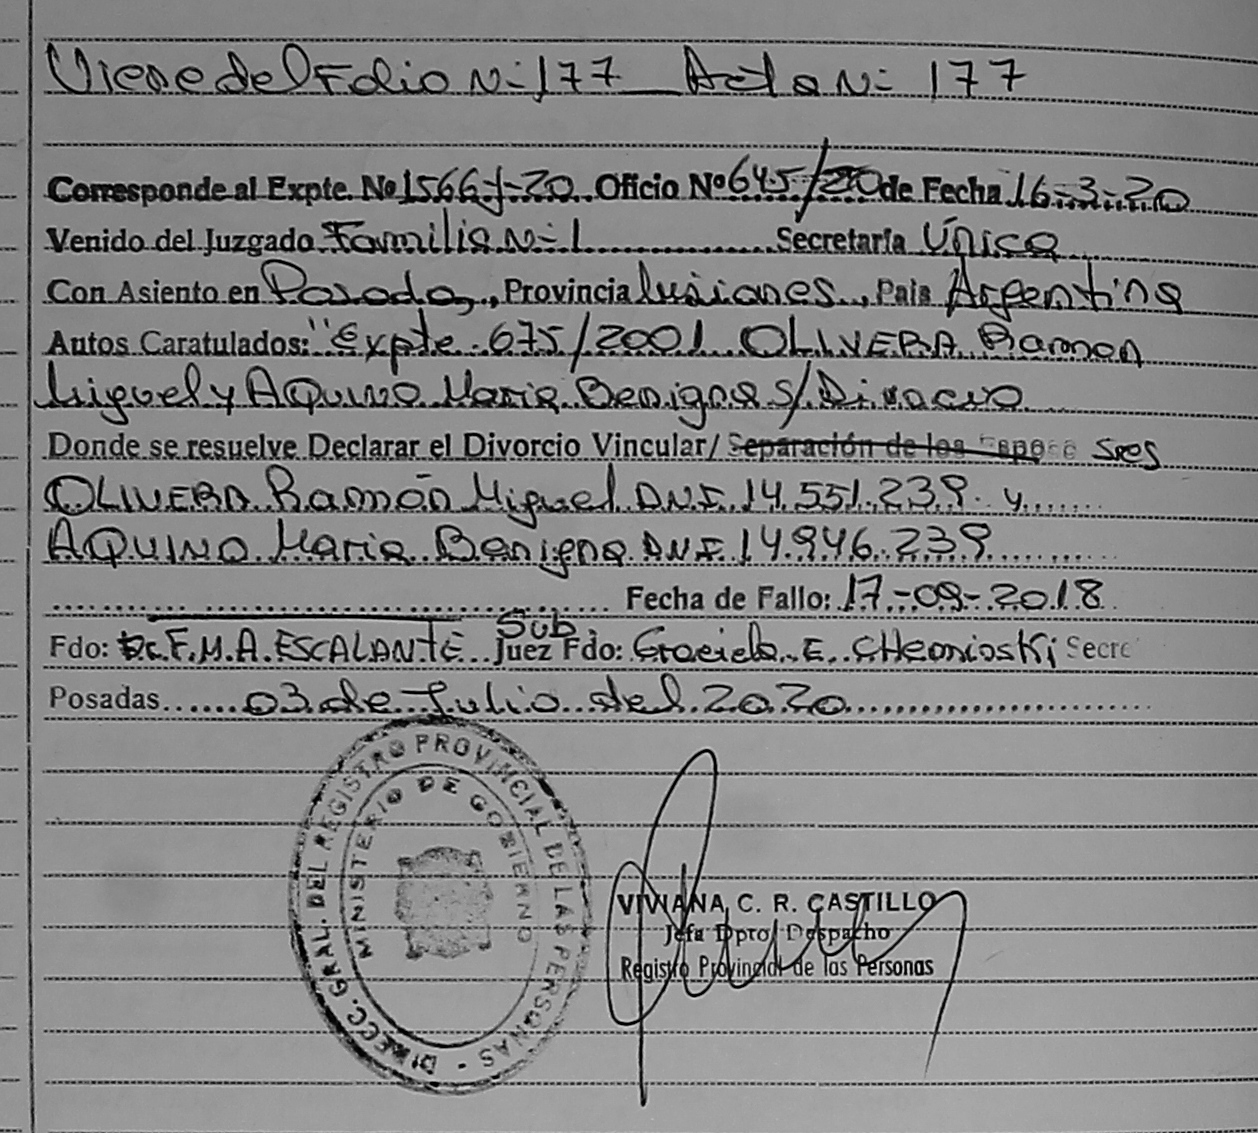 Viene del Folio N- 177 Acta N- 177
Corresponde al Expte. Nº 1566-J-20 Oficio Nº 645/20 de Fecha 16-3-20
Venido del Juzgado Familia N- 1 Secretaría Única
Con Asiento en Posadas, Provincia Misiones, Pais Argentina
Autos Caratulados: "Expte. 675/2001 OLIVERA Ramon
Miguel y AQUINO Maria Benigna s/ Divorcio
Donde se resuelve Declarar el Divorcio Vincular/ Separación de los Espos Sres
OLIVERA Ramón Miguel D.N.I. 14.551.239 y
AQUINO Maria Benigna D.N.I. 14.946.239
Fecha de Fallo: 17-09-2018
Fdo: Dr. F.M.A. ESCALANTE Sub Juez Fdo: Graciela E. CHemioski Secre
Posadas 03 de Julio del 2020
DIRECC. GRAL. DEL REGISTRO PROVINCIAL DE LAS PERSONAS -
MINISTERIO DE GOBIERNO
VIVIANA C. R. CASTILLO
Jefa Dpto. Despacho
Registro Provincial de las Personas